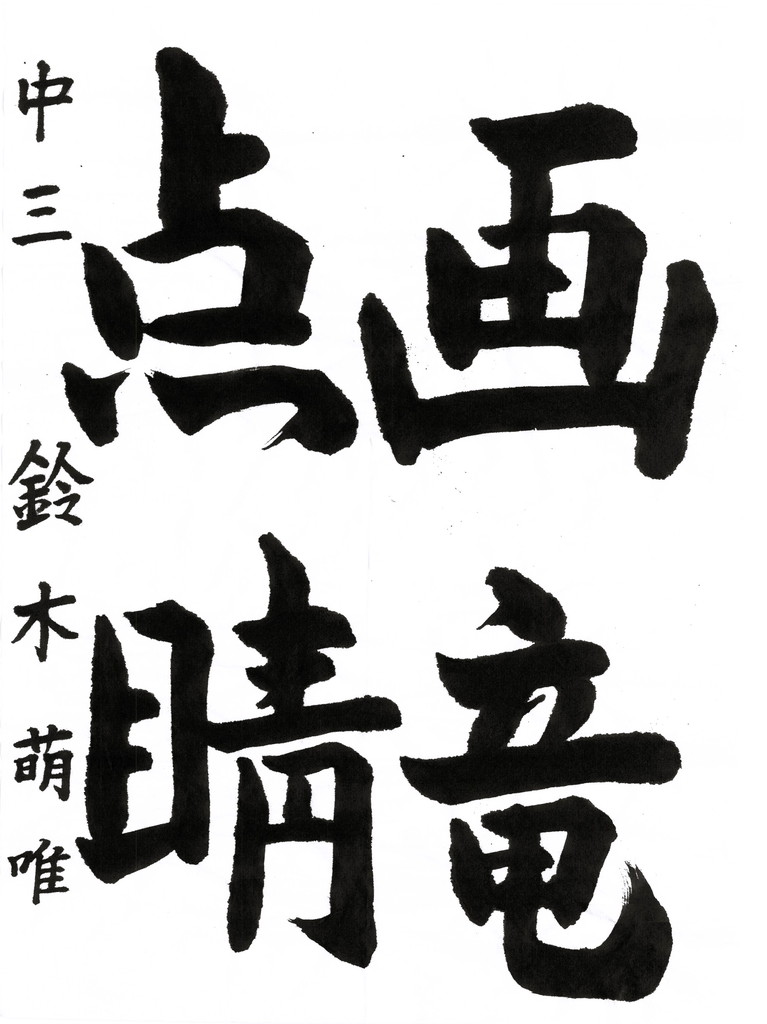 画竜
点睛
中三 鈴木萌唯